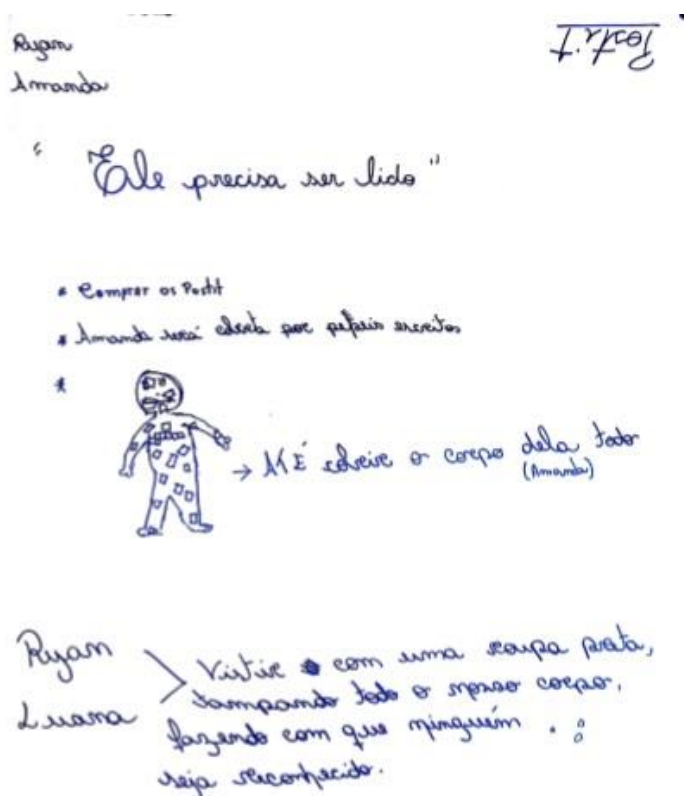 Ryan
Postit
Amanda
" Ele precisa ser lido"
* Comprar os Postit
* Amanda será coberta por papeis escritos
*
→ ATÉ cobrir o corpo dela todo
(Amanda)
Ryan
Luana
> Vistir com uma roupa preta,
tampando todo o nosso corpo,
fazendo com que ninguém
seja reconhecido.